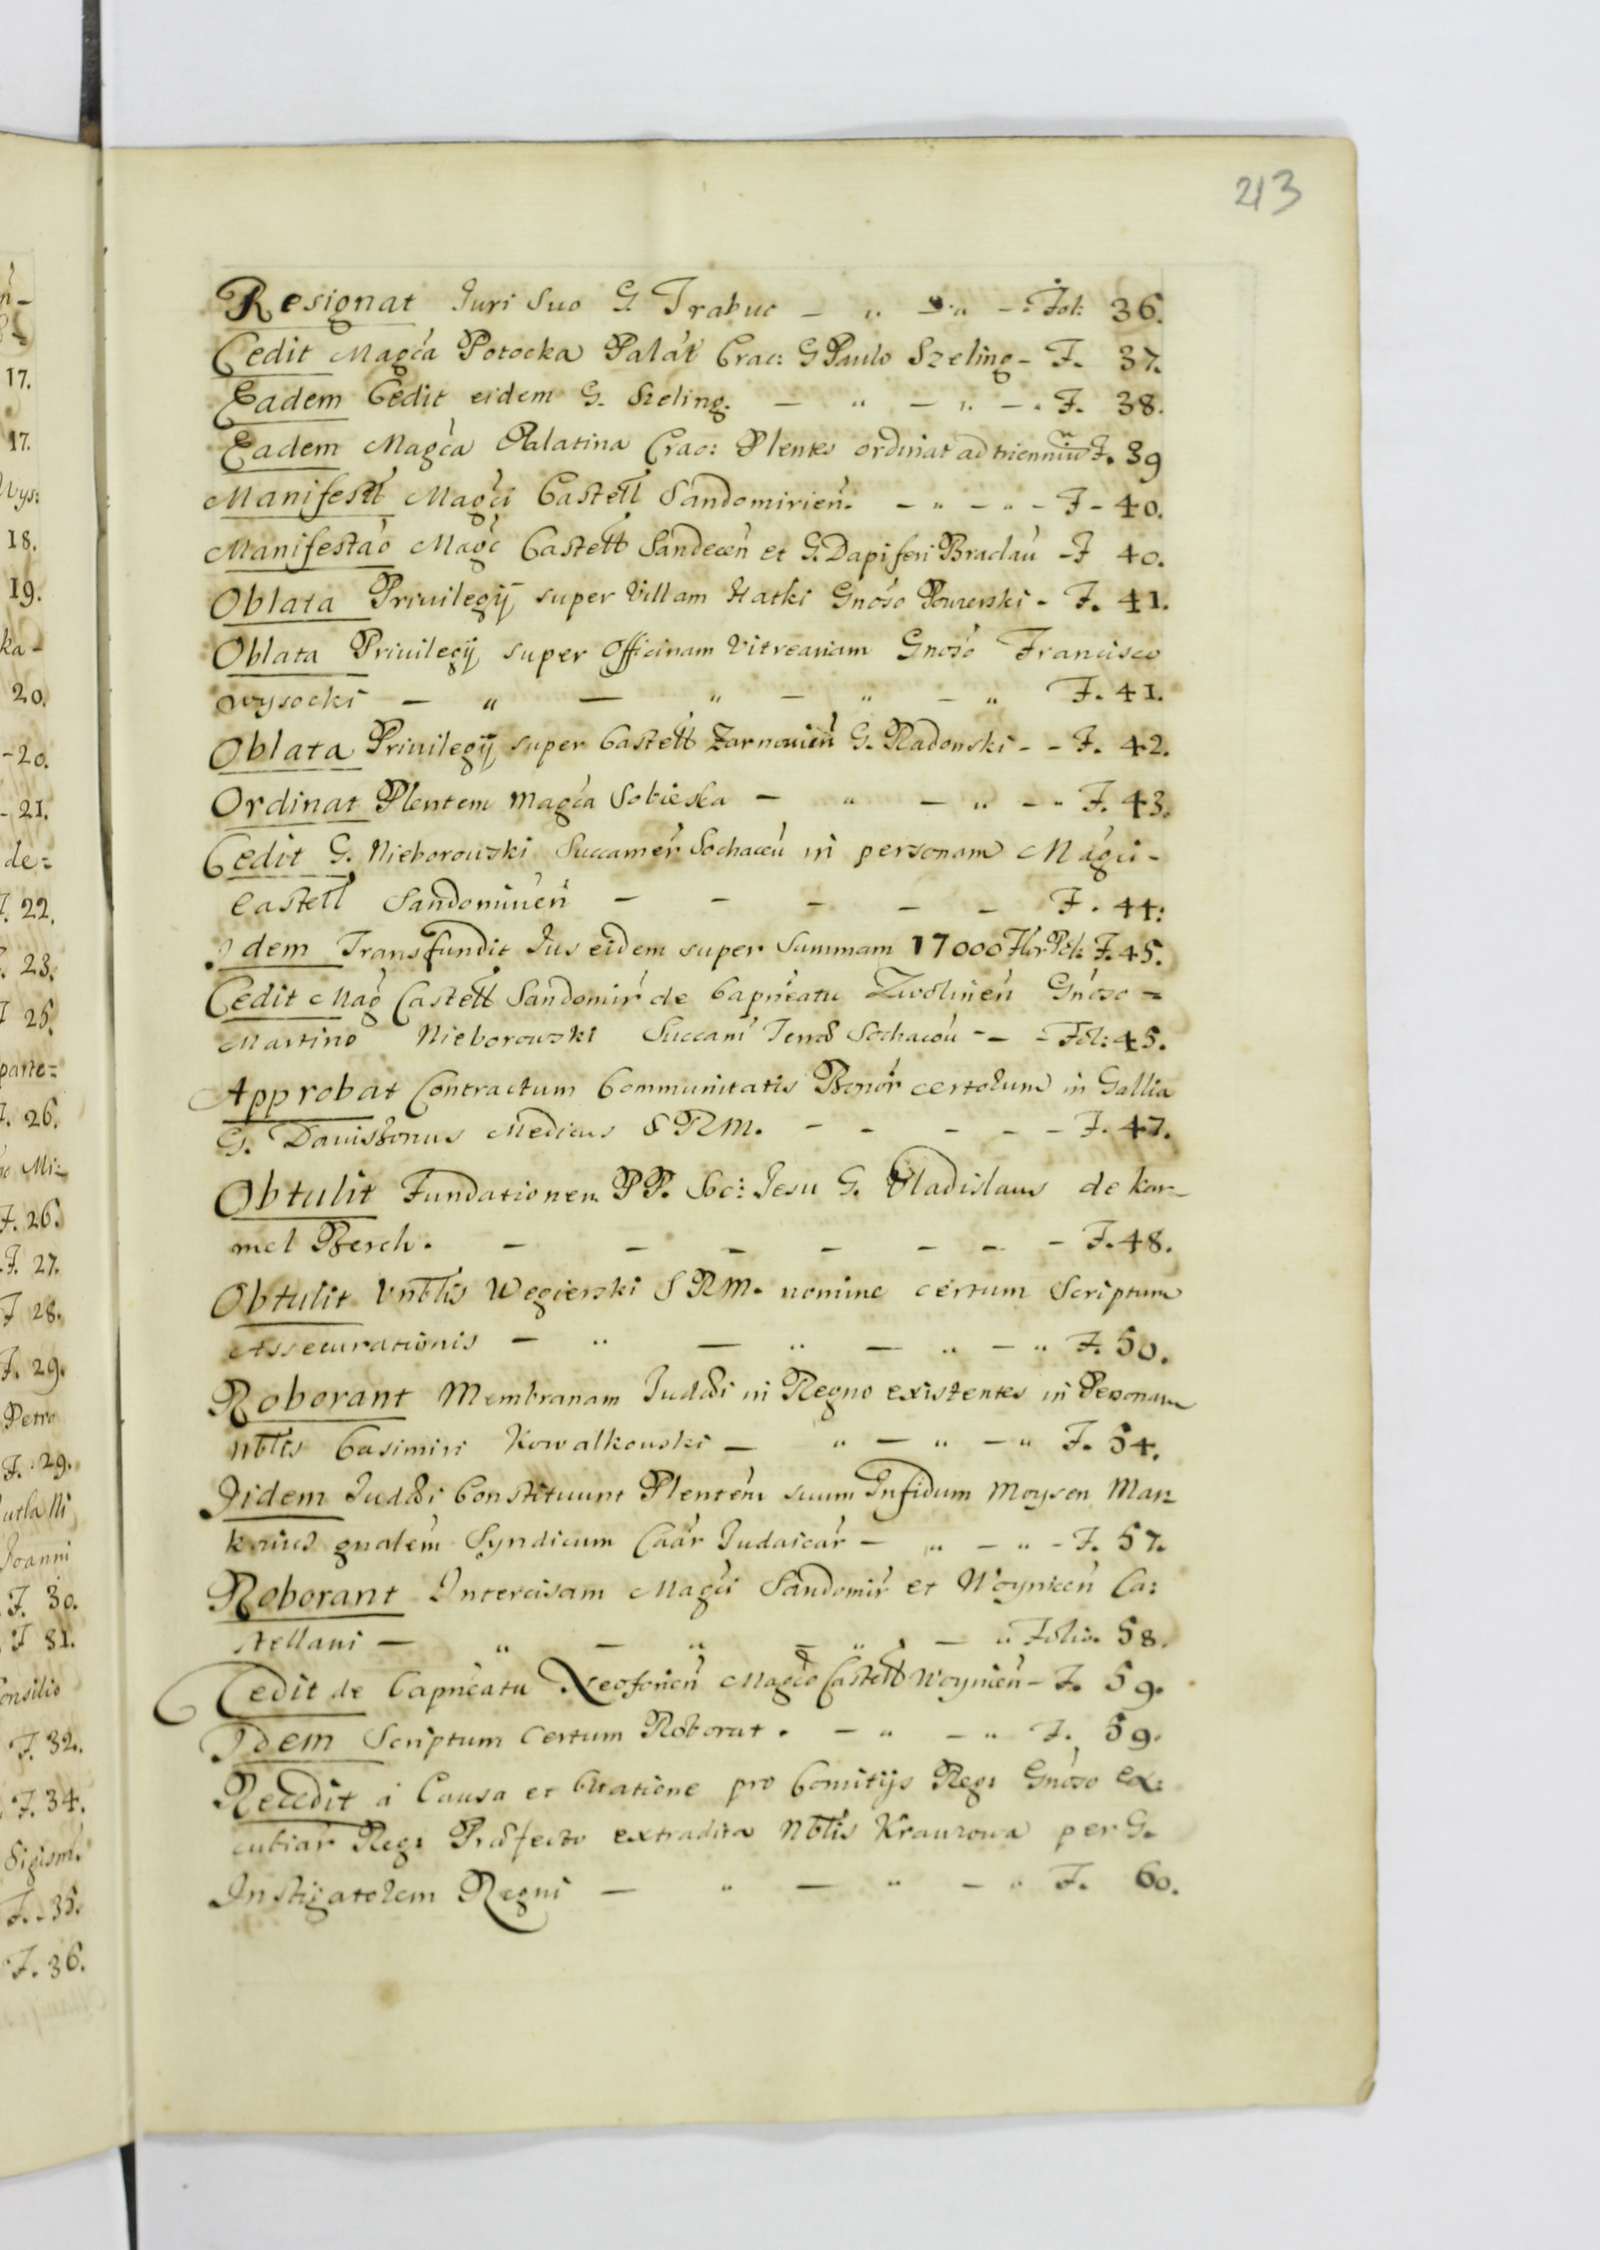 213
Resignat Juri Suo G. Trabuc — " — " —: Fol: 36.
Cedit Magca Potocka Palat Crac: G Paulo Szeling - F. 37.
Eadem Cedit eidem G. Szeling. — " — " — . F. 38.
Eadem Magca Palatina Crac: Plentes ordinat ad trienniu F. 39
Magci Castell Sandomirien. - " - " - F - 40.
Manifestao Magc Castell Sandecen et G. Dapiferi Braclau - F 40.
Oblata Priuilegij super Villam Hatki Gnoso - F. 41.
Oblata Priuilegij super Officinam Vitreariam Gnoso Francisco
Wysocki — " — " — " — " F. 41.
Oblata Priuilegij super Castell Zarnouien G. Radonski - - F. 42.
Ordinat Plentem Magca Sobieska — " — " - " F. 43.
Cedit G. Nieborowski Succamer Sochaceu in personam Magci -
Castell Sandomirien — — — — — F. 44:
Idem Transfundit Jus eidem super Summam 17000 Flor Pol: F. 45.
Cedit Mag Castell Sandomir de Capneatu Zwolinen Gnoso =
Martino Nieborowski Succam Terrae Sochaceu - - - Fol: 45.
Approbat Contractum Communitatis Bonor certorum in Gallia
G. Dauissonus Medicus S R M. - - - - - F. 47.
Obtulit Fundationem PP. Soc: Jesu G. Vladislaus de kar-
mel Bersch. — — — — — — - F. 48.
Obtulit Vnblis Wegierski S R M. nomine certum Scriptum
Assecurationis — " — " — " — " F. 50.
Roborant Membranam Judaei in Regno existentes in Personam
nblis Casimiri Kowalkouski — " — " — " F. 54.
Iidem Judaei Constituunt Plentem suum Infidum Moysen Mar-
gnalem Syndicum Judaicar — " — " - F. 57.
Roborant Intercisam Magci Sandomir et Woynicen Ca:
stellani — " — " — " — " Folio. 58.
Cedit de Capneatu Magco Castell Woynicen - F. 59.
Idem Scriptum Certum Roborat. — " — " F. 59.
Recedit a Causa et Citatione pro Comitijs Regi Gnoso ex:
cubiar Regi Praefecto extradita Nblis Krauzowa per G.
Instigatorem Regni — " — " — " F. 60.
17.
17.
Wys:
18.
19.
ka -
20.
- 20.
- 21.
de =
F. 22.
. 23.
F 25.
parte =
F. 26.
Mi:
F. 26.
F. 27.
F 28.
F. 29.
Petro
F. 29.
Joanni
F. 30.
F 31.
onsilio
F. 32.
F. 34.
Sigism.
F. 35.
F. 36.